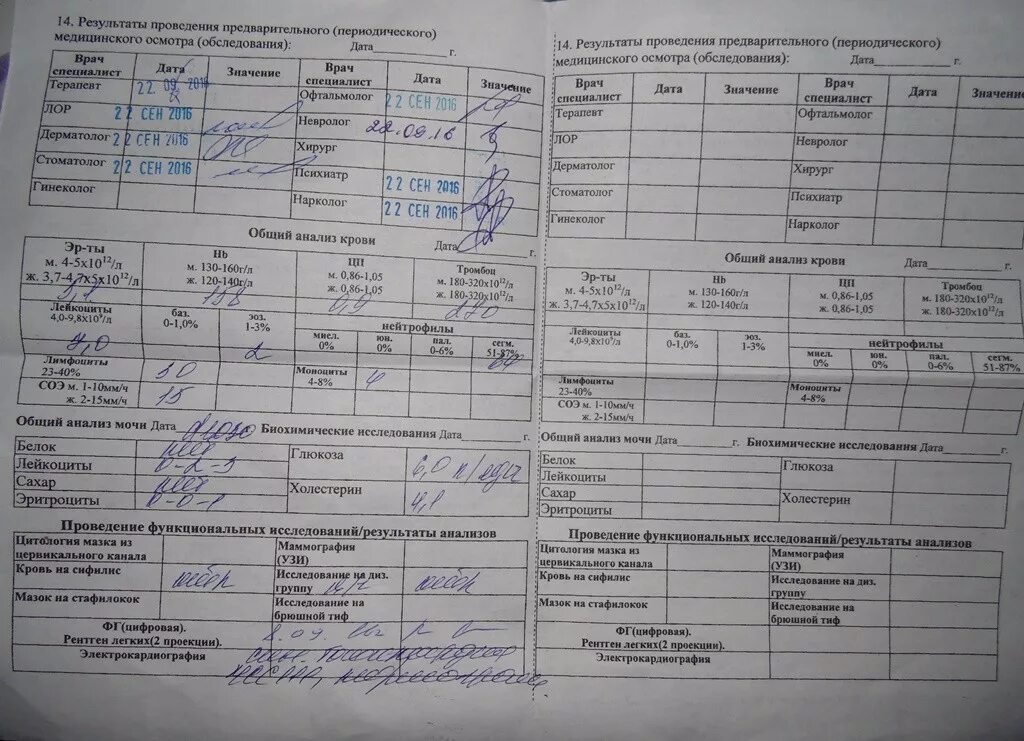 14. Результаты проведения предварительного (периодического)
медицинского осмотра (обследования): Дата_________ г.
Врач специалист Дата Значение Врач специалист Дата Значение
Терапевт 22 09 2016 Офтальмолог 22 СЕН 2016
ЛОР 22 СЕН 2016 Невролог 22.09.16
Дерматолог 22 СЕН 2016 Хирург
Стоматолог 22 СЕН 2016 Психиатр 22 СЕН 2016
Гинеколог Нарколог 22 СЕН 2016
Общий анализ крови Дата_________ г.
Эр-ты Hb ЦП Тромбоц
м. 4-5х10¹²/л м. 130-160г/л м. 0,86-1,05 м. 180-320х10¹²/л
ж. 3,7-4,7х5х10¹²/л ж. 120-140г/л ж. 0,86-1,05 ж. 180-320х10¹²/л
5,1 158 0,9 270
Лейкоциты 4,0-9,8х10⁹/л баз. 0-1,0% эоз. 1-3% нейтрофилы
миел. 0% юн. 0% пал. 0-6% сегм. 51-87%
9,0 2 64
Лимфоциты 23-40% 30 Моноциты 4-8% 4
СОЭ м. 1-10мм/ч ж. 2-15мм/ч 15
Общий анализ мочи Дата Биохимические исследования Дата_________ г.
Белок Глюкоза 6,0
Лейкоциты 0-2-3
Сахар Холестерин 4,1
Эритроциты 0-0-1
Проведение функциональных исследований/результаты анализов
Цитология мазка из цервикального канала Маммография (УЗИ)
Кровь на сифилис Исследование на диз. группу
Мазок на стафилокок Исследование на брюшной тиф
ФГ(цифровая).
Рентген легких(2 проекции).
Электрокардиография
14. Результаты проведения предварительного (периодического)
медицинского осмотра (обследования): Дата_________ г.
Врач специалист Дата Значение Врач специалист Дата Значение
Терапевт Офтальмолог
ЛОР Невролог
Дерматолог Хирург
Стоматолог Психиатр
Гинеколог Нарколог
Общий анализ крови Дата_________ г.
Эр-ты Hb ЦП Тромбоц
м. 4-5х10¹²/л м. 130-160г/л м. 0,86-1,05 м. 180-320х10¹²/л
ж. 3,7-4,7х5х10¹²/л ж. 120-140г/л ж. 0,86-1,05 ж. 180-320х10¹²/л
Лейкоциты 4,0-9,8х10⁹/л баз. 0-1,0% эоз. 1-3% нейтрофилы
миел. 0% юн. 0% пал. 0-6% сегм. 51-87%
Лимфоциты 23-40% Моноциты 4-8%
СОЭ м. 1-10мм/ч ж. 2-15мм/ч
Общий анализ мочи Дата_________ г. Биохимические исследования Дата_________ г.
Белок Глюкоза
Лейкоциты
Сахар Холестерин
Эритроциты
Проведение функциональных исследований/результаты анализов
Цитология мазка из цервикального канала Маммография (УЗИ)
Кровь на сифилис Исследование на диз. группу
Мазок на стафилокок Исследование на брюшной тиф
ФГ(цифровая).
Рентген легких(2 проекции).
Электрокардиография